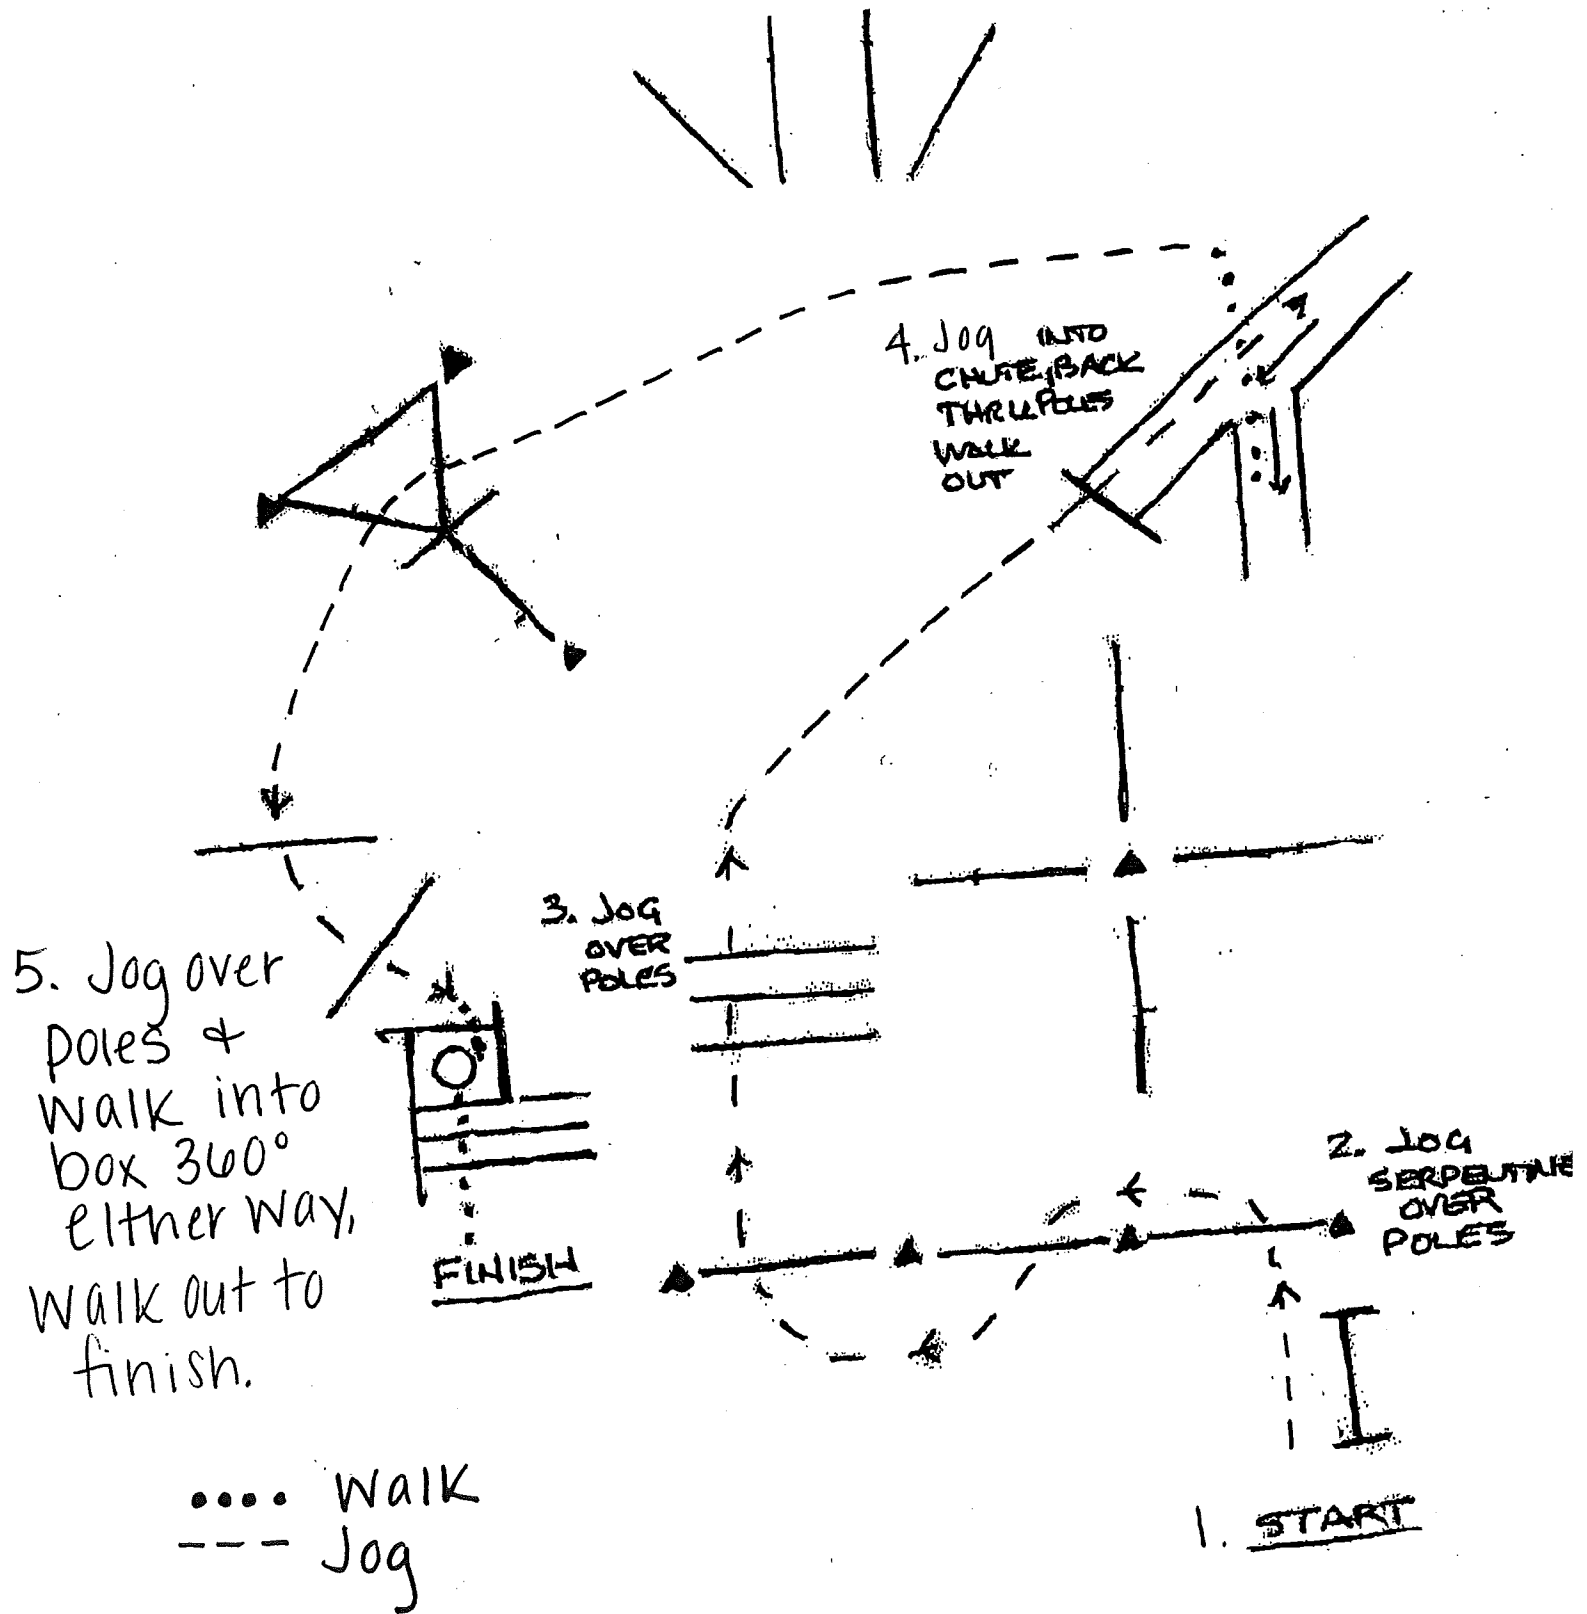 4. Jog INTO
CHUTE, BACK
THRU POLES
WALK
OUT
3. JOG
OVER
POLES
5. Jog over
poles &
walk into
box 360°
either way,
walk out to
finish.
2. JOG
SERPENTINE
OVER
POLES
FINISH
.... Walk
--- Jog
1. START